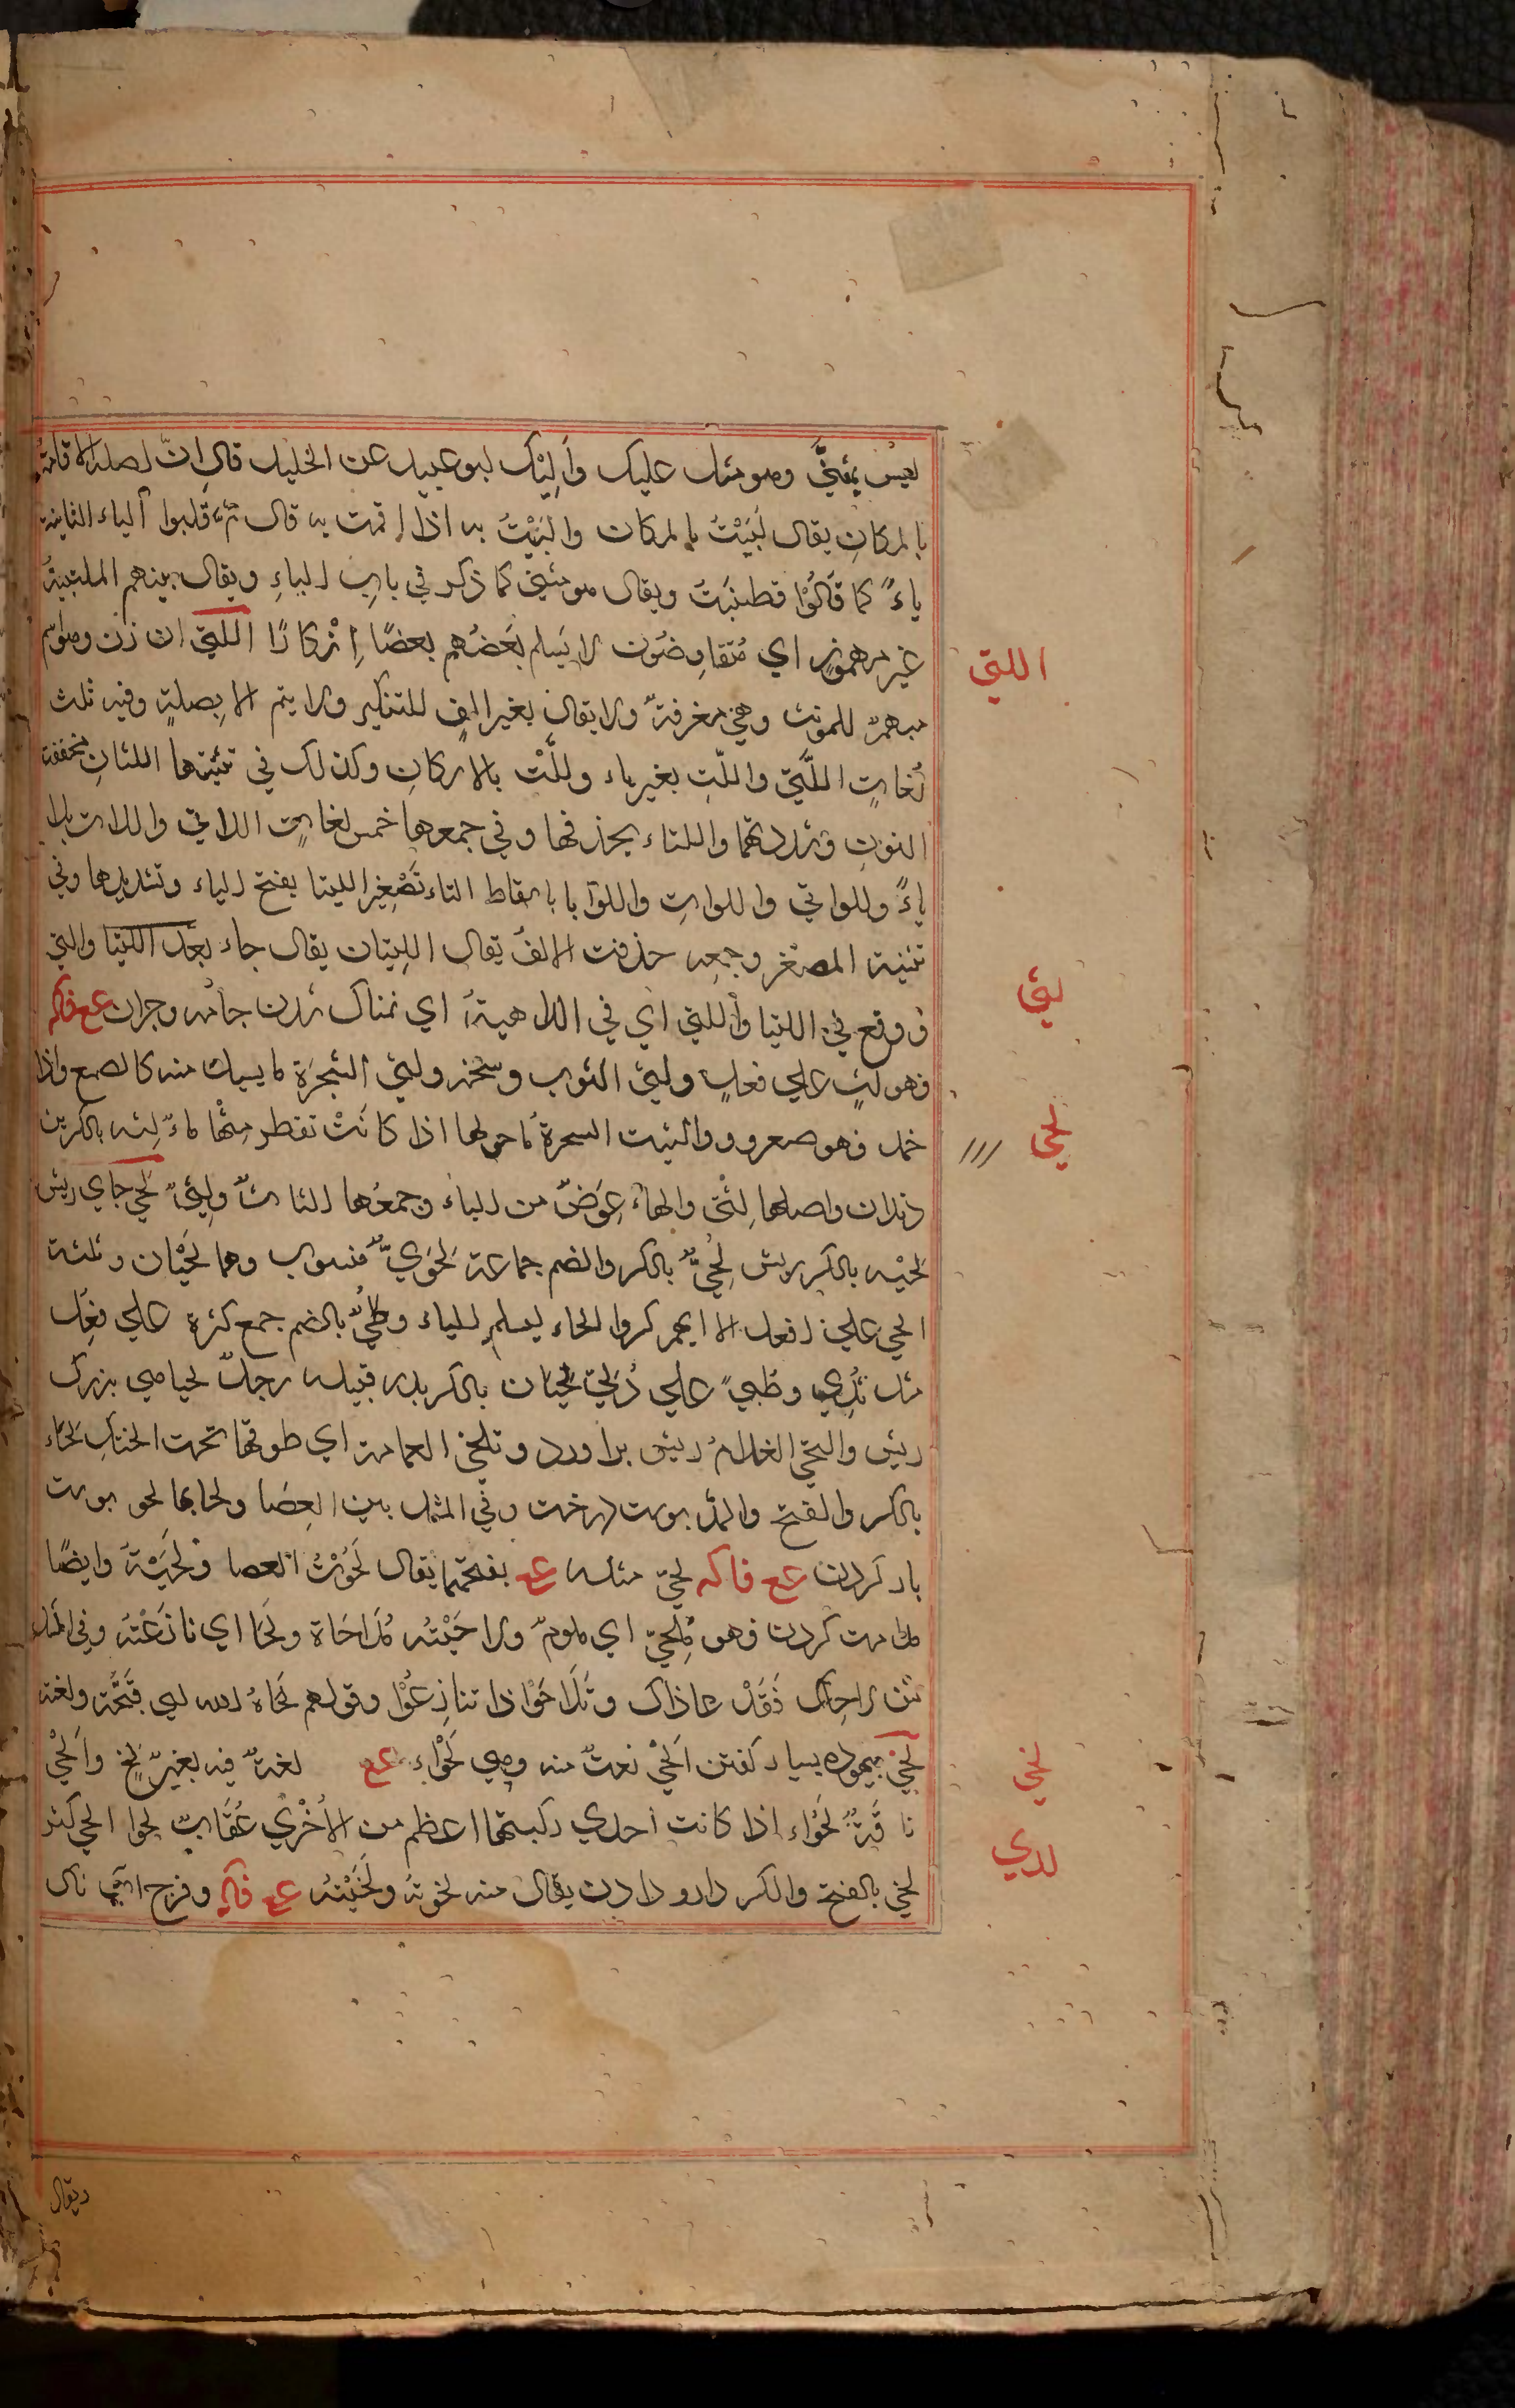 ليس بمثنًّى وهو مثل عليك واليك ابو عبيد عن الخليل قال ان اصله الاقامة
بالمكان يقال لَبَّيْتُ بالمكان والبَيْتُ به اذا اقمت به قال ثم قلبوا الياء الثانية
ياءً كما قالُوْا قطنيَّت ويقال هو مثنى كما ذكر في باب الباءِ ويقال بينهم الملتبية
غير مهموزٍ اي مُتَفاوِضُون لا يَسلم بَعضُهم بعضًا اِنْكارًا اللتي ان زن وهو اسم
مبهم للمونث وهي معرفة ولا يقال بغير الفٍ للتنكير ولا يتم الا بصلةٍ وفيه ثلث
لُغاتٍ اللَّتي واللّتِ بغير ياء وللَّتْ بالاسكانِ وكذلك في تثنيتها اللتانِ مخففة
النون وتشديدها واللتاء بحذفها وفي جمعها خمس لغاتٍ اللاتي واللات بلا
ياءً وللواتي واللواتِ واللوَا باسقاط التاء تَصْغِير اللَّتيا بفتح الياء وتشديدها وفي
تثنية المصغر وجمعِه حذفت الالفُ يقال اللتيّان يقال جاء بعد اللتيّا والتي
ووقع في اللتيا واللتي اي في الداهيةُ اي نمناک شدن جامه وجزان عع فاكه
فهو لثٍ علي فعلٍ ولثي الثوب وسخه ولثي الشجرَة ما يسيل منه كالصمغ واذا
جمد فهو صعرور والثيت الشجرة ما حولها اذا كانَتْ تقطر مِنْها ماءٌ لثه بالكسر بن
دندان واصلها لِثَيٌ والهاء عِوَضٌ من الياء وجمعُها لثاتٌ ولِثىً لحي جاي ريش
لحْيه بالكسر ريش لُحِيٌّ بالكسر والضم جماعة لحَوِيٌّ منسوب وهما لَحْيان وثلثة
الحٍ علي افعل الا انهم كسروا الحاء ليسلم الياء ولُحِيٌّ بالضم جمع كثرة علي فعول
مثل ثُدِيٍ وظُبِيٍ علي دُلِيٍّ لَحْيان بالكسر پدر قبيله رجل لحياني بزرک
ريش والتحي الغلامُ ريش براورد وتلحي العمامة اي طوقها تحت الحنك لحاء
بالكسر والفتح والمد پوست درخت وفي المثل بين العصَا ولحايها لحو پوست
باز كردن عع فاكه لحي مثله عع بفتحهما يقال لَحَوْتُ العصا ولحَيْتَهُ وايضًا
ملامت كردن فهو مَلْحِيّ اي ملوم ولاحَيْتُه مُلَاحَاة ولِحَا اي نازَعْته وفي المثل
من لاحاك فَقَدْ عاداک وتَلَاحَوْا اذا تنازعُوْا وقولهم لحَاهُ الله اي قَبَّحَهُ ولعنه
لخي بيهوده بسيار گفتن اَلْخَى نعتٌ منه وهي لَخْواءِ عع لغةٌ فيه بعير لخ واَلْخَى
ناقَةٌ لَخْواء اذا كانت احدي ركبتيها اعظم من الاُخْري عُقَابٌ لخوا الخ كثر
لخي بالفتح والكسر دارو دادن يقال منه لخوتهُ ولَخَيْتُه عع فاكه وفرج
اللتي
لثي
لحي
لخي
لدي
ديقال